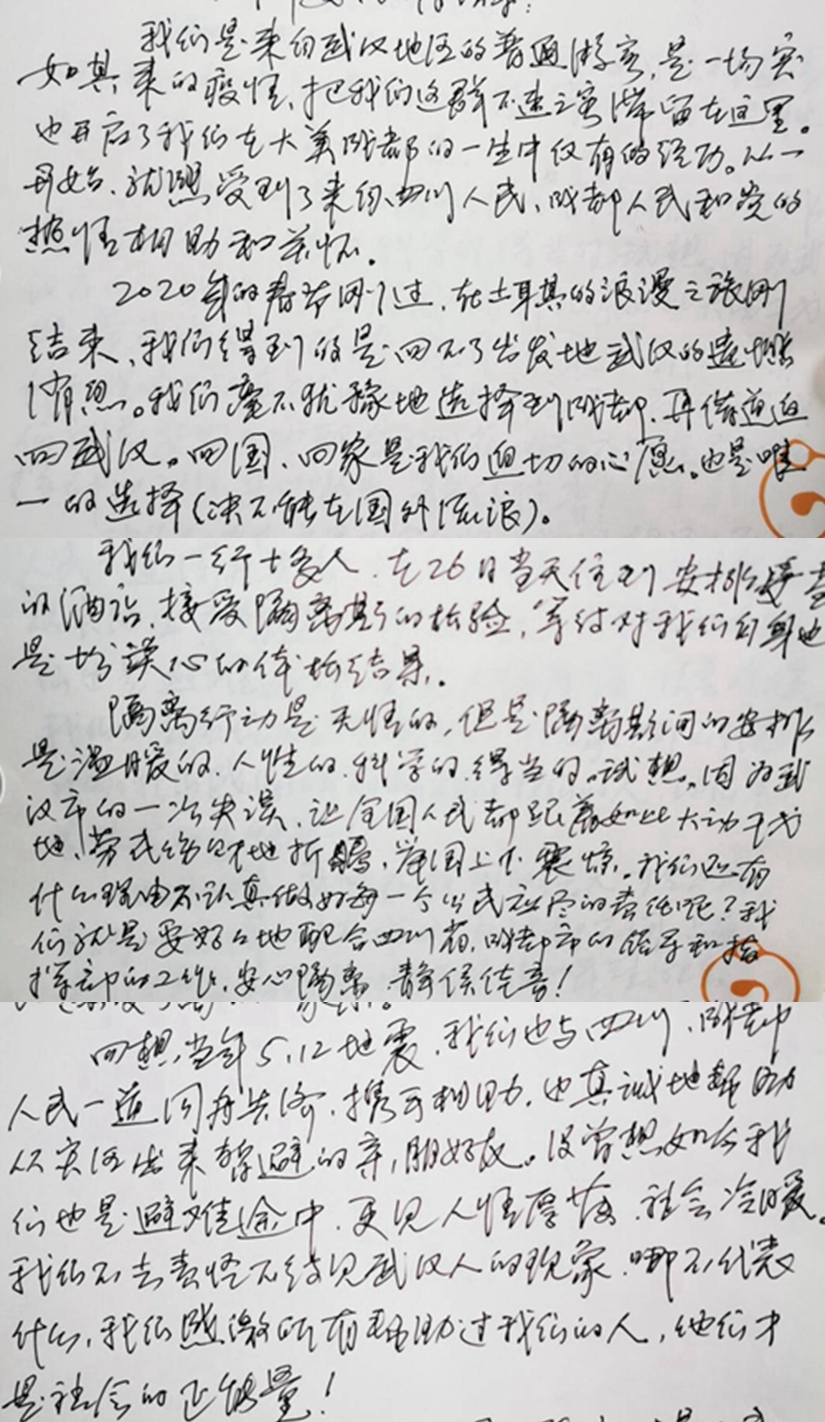 我们是来自武汉地区的普通游客,是一场突
如其来的疫情,把我们这群不速之客滞留在这里。
也开启了我们在大美成都的一生中仅有的经历。从一
开始、就感受到了来自四川人民、成都人民和党的
热情相助和关怀。
2020年的春节刚过,在土耳其的浪漫之旅刚
结束、我们得到的是回不了出发地武汉的遗憾
信息。我们毫不犹豫地选择到成都、再借道返
回武汉。回国、回家是我们迫切的心愿。也是唯
一的选择(决不能在国外流浪)。
我们一行十多人、在26日当天住到安排
的酒店,接受隔离期的检验,等待对我们自身也
是担心的体检结果。
隔离行动是无情的,但是隔离期间的安排
是温暖的、人性的、科学的、得当的。试想,因为武
汉市的一次失误、让全国人民都跟着如此大动干戈
地、劳民伤财地折腾,举国上下震惊。我们还有
什么理由不认真做好每一个公民应尽的责任呢?我
们就是要好好地配合四川省、成都市的领导和指
挥部的工作,安心隔离、静候佳音!
回想当年5.12地震、我们也与四川、成都
人民一道同舟共济、携手相助,也真诚地帮助
从灾区出来暂避的亲朋好友。没曾想如今我
们也是避难途中、更见人情厚薄、社会冷暖。
我们不去责怪不待见武汉人的现象、哪不代表
什么,我们感激所有帮助过我们的人,他们才
是社会的正能量!